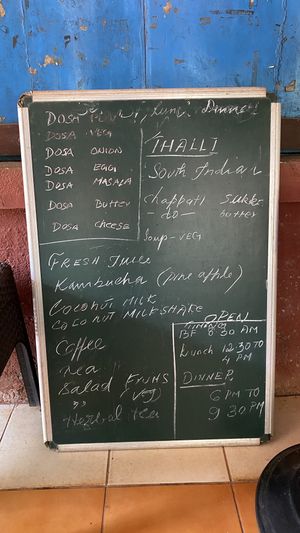 DOSA PLAIN / Lunch Dinner
DOSA VEG
DOSA ONION
DOSA EGG
DOSA MASALA
DOSA Butter
DOSA cheese
THALLI
South Indian
chappatti sukka
- do - butter
Soup - VEG
FRESH Juice
Kambucha (pine apple)
COCONUT MILK
COCONUT MILK SHAKE
Coffee
Tea
Salad Fruits
" (veg)
Herbal tea
OPEN
TIMINGS
BF 8 30 AM
Lunch 12:30 TO
4 PM
DINNER
6 PM TO
9 30 PM